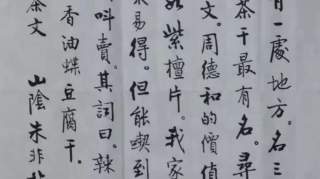 一處地方。名三
茶干最有名。尋
文。周德和的價值
如紫檀片。我家
易得。但能喫到
叫賣。其詞曰。辣
香油煠豆腐干。
茶文　山陰朱非